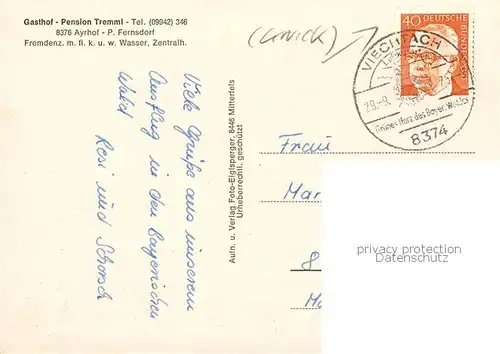 Gasthof - Pension Tremml - Tel. (09942) 346
8376 Ayrhof - P. Fernsdorf
Fremdenz. m. fl. k. u. w. Wasser, Zentralh.
(Knick)
40 DEUTSCHE BUNDESPOST
VIECHTACH
Grünes Herz des Bayer. Waldes
8374
Viele Grüße aus unserem
Ausflug in den Bayerischen
Wald
Resi und Schorsch
Aufn. u. Verlag Foto-Eiglsperger, 8446 Mitterfels
Urheberrechtl. geschützt
Frau
Mar
8
privacy protection